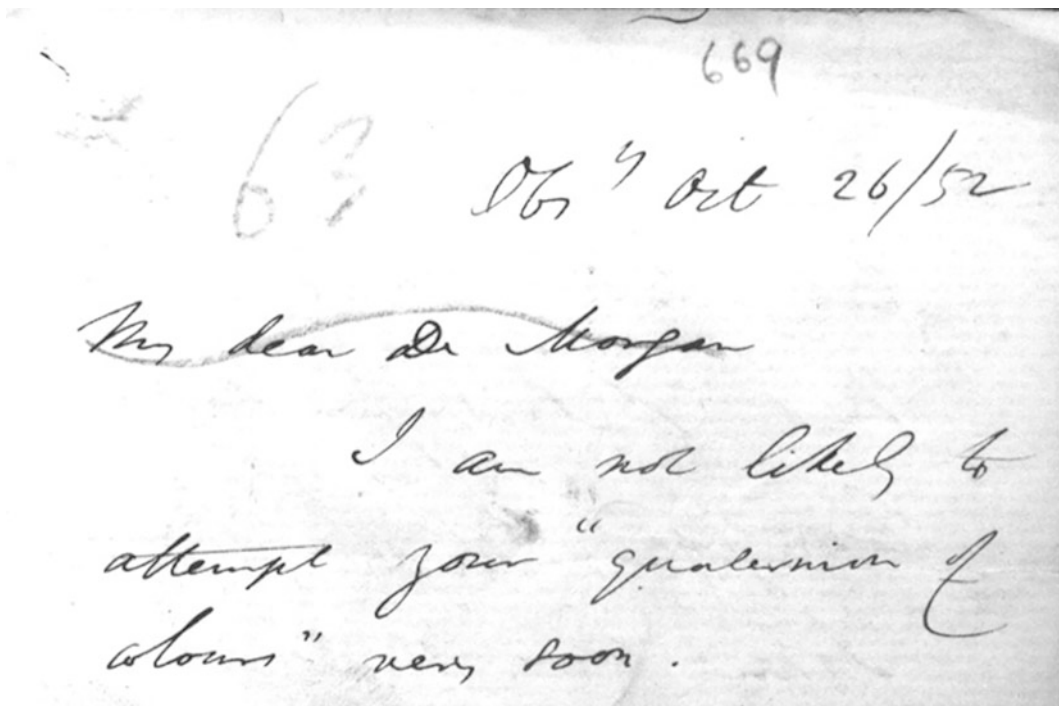 669
63
Obsy Oct 26/52
My dear De Morgan
I am not likely to
attempt your "quaternion of
colours" very soon.